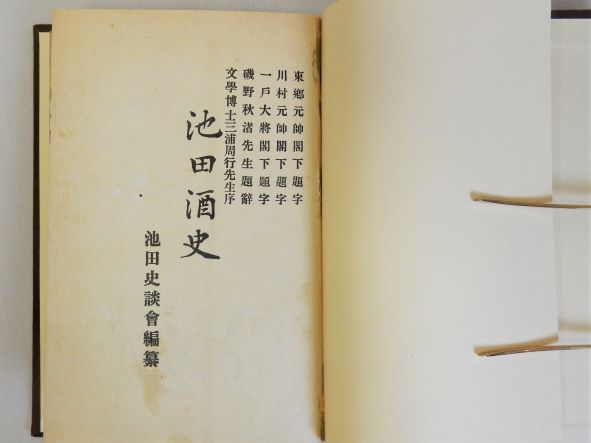 東鄕元帥閣下題字
川村元帥閣下題字
一戶大將閣下題字
磯野秋渚先生題辭
文學博士三浦周行先生序
池田酒史
池田史談會編纂